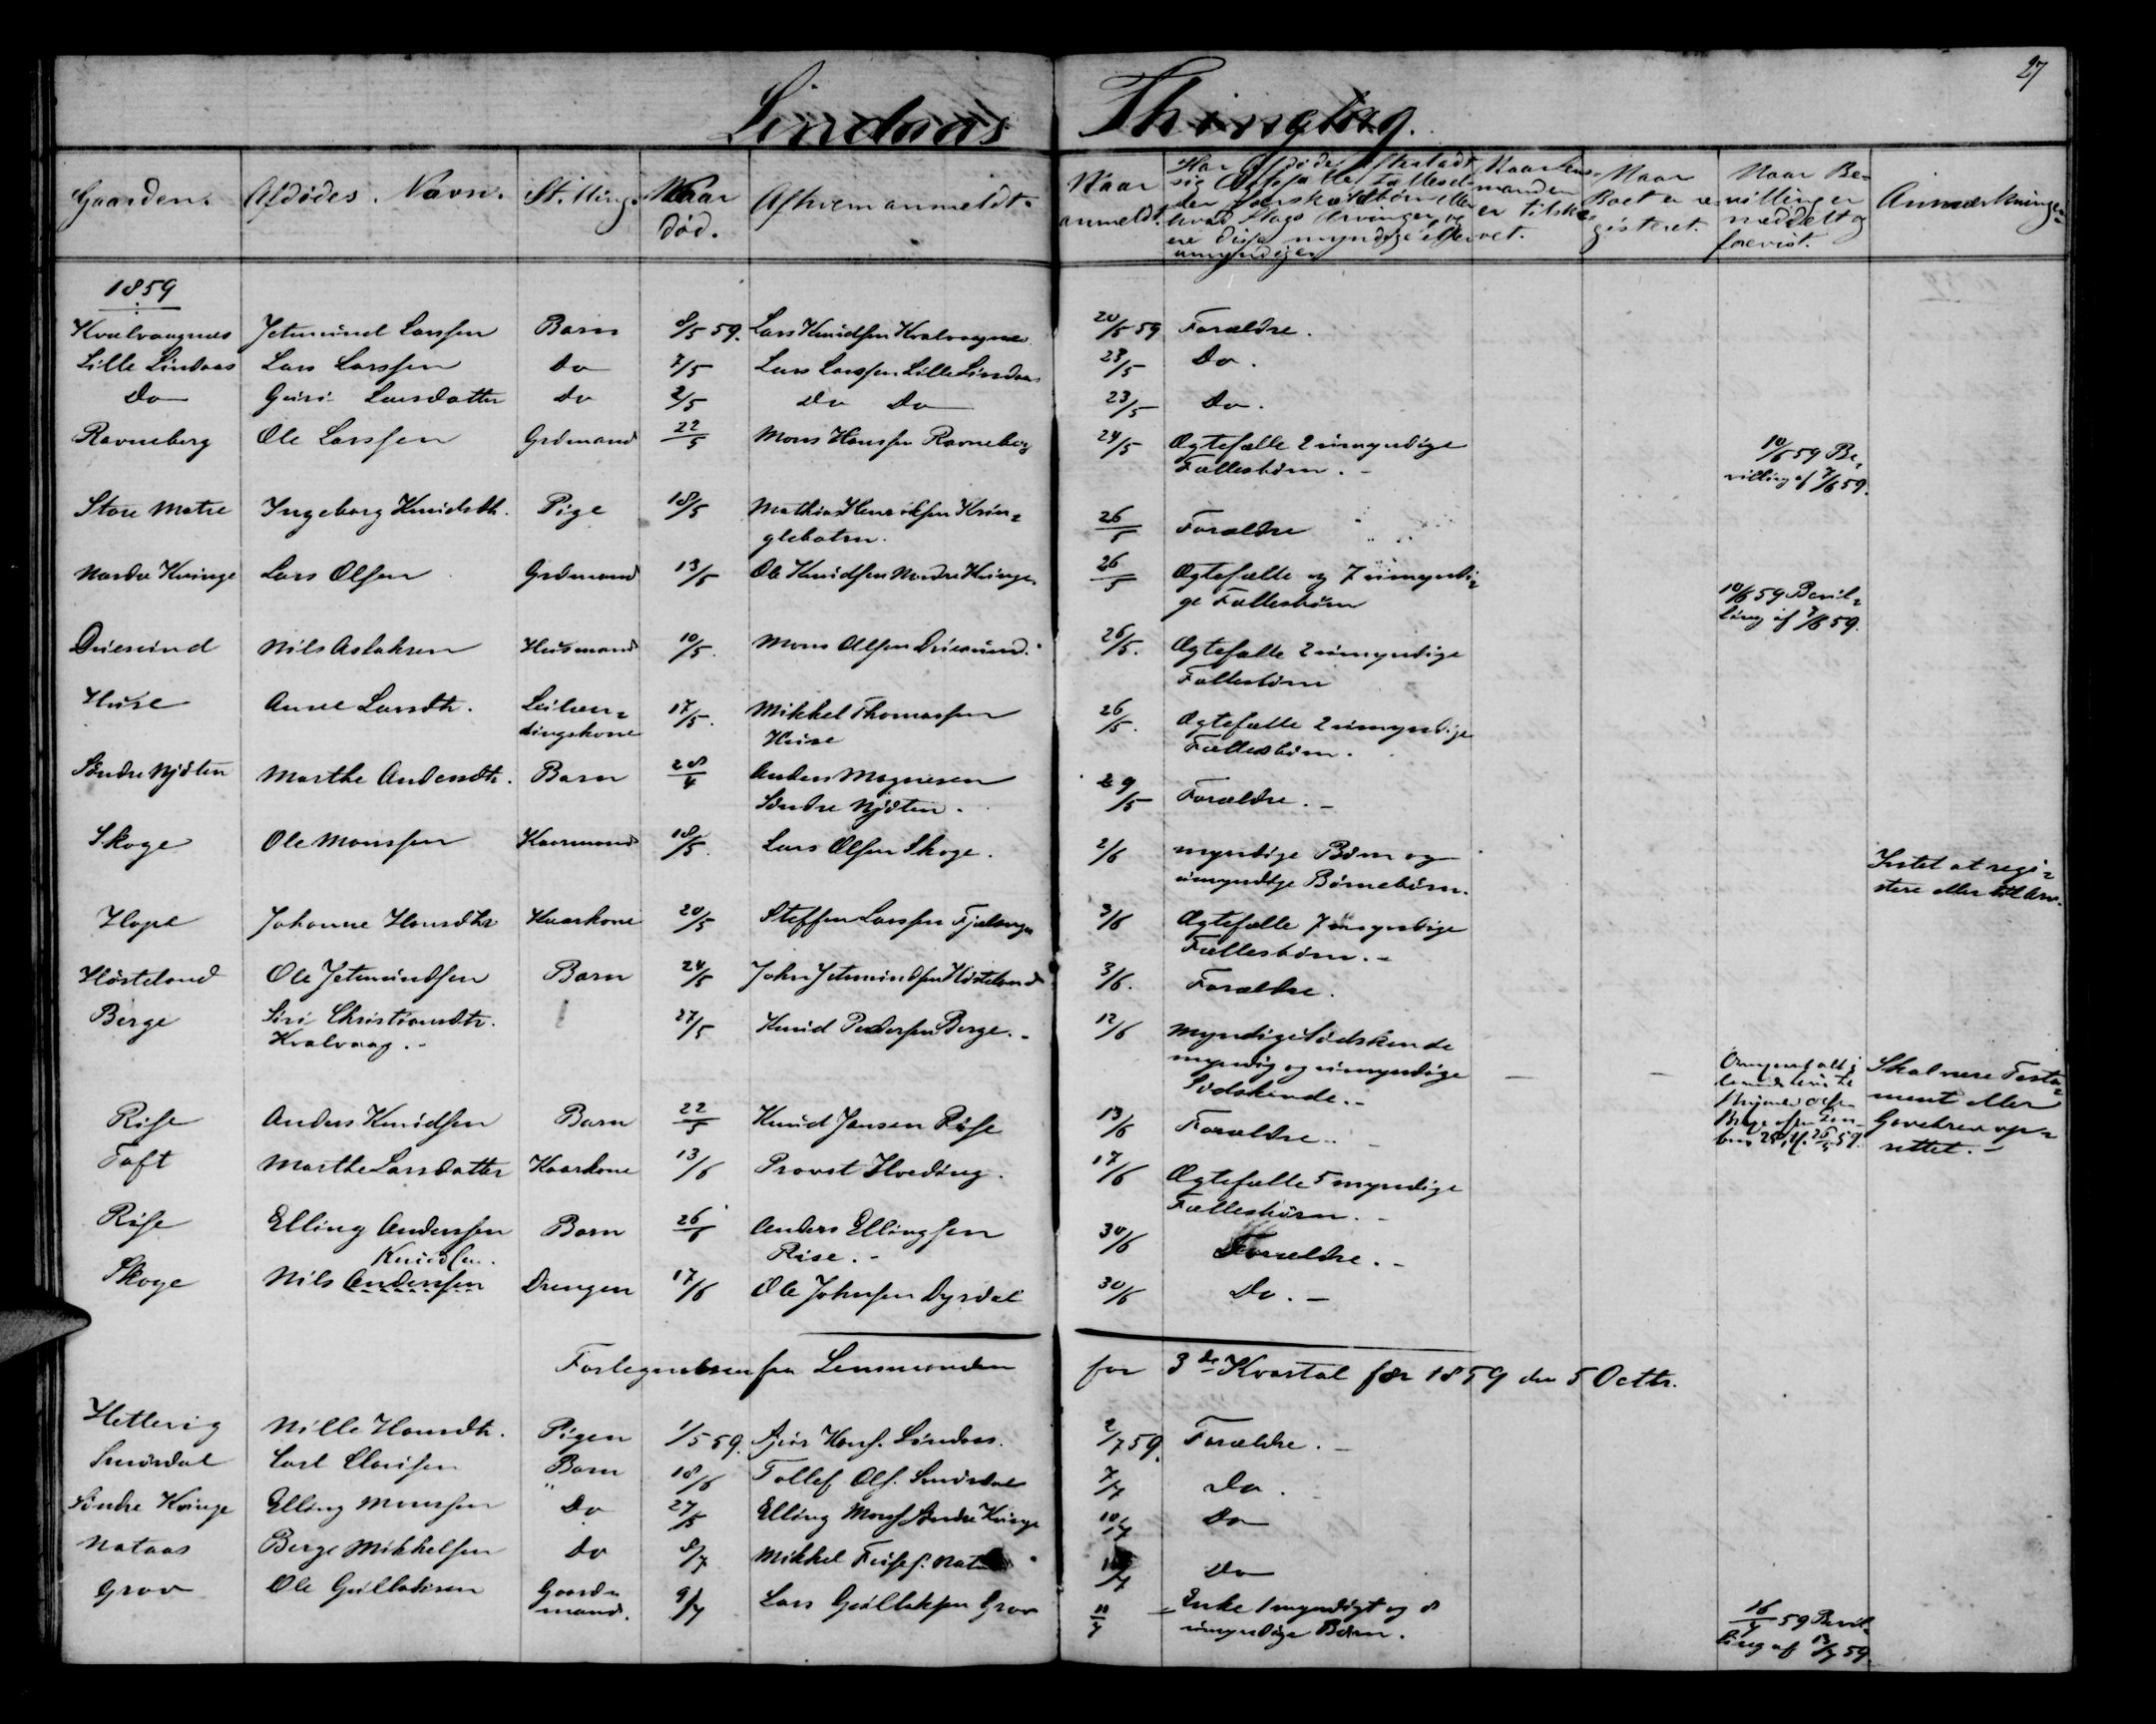 27
Lindaas Thinglag.
Gaarden. Afdødes Navn. Stilling. Naar død. Af hvem anmeldt. Naar anmeldt. Har Afdøde efterladt sig Ægtefælle Fællesbørn eller Særskildtbørn eller hvad Slags Arvinger, og ere disse myndige eller umyndige Naar Lensmanden er tilskrevet. Naar Boet er registeret. Naar Bevillinger meddelt og forevist. Anmærkninger
1859
Kvalvaagnæs Jetmund Larssen Barn 8/5 59. Lars Knudsen Kvalvaagnæs 20/5 59 Forældre.
Lille Lindaas Lars Larssen Do 7/5 Lars Larssen Lille Lindaas 23/5 Do.
Do Guri Larsdatter do 2/5 Do Do 23/5 Do.
Ravneberg Ole Larssen Grdmand 22/5 Mons Hanssen Ravneberg 24/5 Ægtefælle 2 umyndige
Fællesbørn. - 10/6 59 Be-
villing af 7/6 59.
Store Matre Ingeborg Knudsdtr. Pige 18/5 Mathias Henriksen Krin-
glebotn. 26/5 Forældre
Nordre Kvinge Lars Olsen Grdmand 13/5 Ole Knudsen Nordre Kvinge 26/5 Ægtefælle og 7 umyndi-
ge Fællesbørn 10/6 59 Bevil-
ling af 7/6 59.
Duesund Nils Aslaksen Husmand 10/5. Mons Olsen Duesund. 26/5. Ægtefælle 2 umyndige
Fællesbørn
Huse Anne Larsdtr. Leilæn-
dingskone 17/5. Mikkel Thomassen
Huse 26/5. Ægtefælle 2 umyndige
Fællesbørn.
Søndre Njøten Marthe Andersdtr. Barn 28/4 Anders Magnesen
Søndre Njøten. 29/5 Forældre. -
Skoge Ole Monssen Kaarmand 18/5. Lars Olsen Skoge. 2/6 myndige Børn og
umyndige Børnebørn. Intet at regi-
stere eller
Hope Johanne Hansdtr Kaarkone 20/5 Steffen Larssen Fjelanger 3/6 Ægtefælle 7 myndige
Fællesbørn. -
Høsteland Ole Jetmundsen Barn 24/5 John Jetmundsen Høsteland 3/6. Forældre.
Berge Siri Christiansdtr.
Kvalvaag. - 27/5 Knud Pedersen Berge. - 12/6 Myndige Sødskende
myndig og umyndige
Sødskende. - Skal være Testa-
ment eller
Gavebrev op-
rettet. -
Rise Anders Knudsen Barn 22/5 Knud Jansen Rise 13/6 Forældre. -
Toft Marthe Larsdatter Kaarkone 13/6 Provst Hveding. 17/6 Ægtefælle 5 myndige
Fællesbørn. -
Rise Elling Anderssen Barn 26/6 Anders Ellingsen
Rise. - 30/6 Forældre. -
Knudsen.
Skoge Nils Anderssen Drengen 17/6 Ole Johnsen Dyrdal 30/6 Do. -
Fortegnelsen fra Lensmanden for 3de Kvartal for 1859 den 5 Octbr.
Hettevig Nille Hansdtr. Pigen 1/5 59. Hans. Lindaas. 2/7 59. Forældre. -
Smørdal Carl Barn 18/6 Tollef Ols. Smørdal 7/7 Do.
Søndre Kvinge Elling Monssen Do 27/5 Elling Mons. Søndre Kvinge 10/7 Do
Nataas Berge Mikkelsen do 8/7 Mikkel 10/7 Do
Grov Ole Gullaksen Gaard-
mand. 9/7 Lars Gullaksen Grov 11/7 Enke 1 myndigt og 8
umyndige Børn. 16/7 59 Bevil-
ling af 13/7 59.